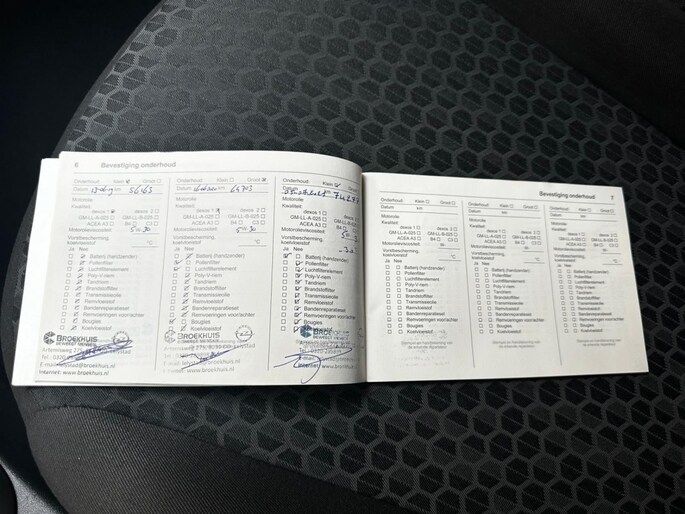 6 Bevestiging onderhoud
Onderhoud: Klein Groot
Datum km 56163
Motorolie
Kwaliteit:
dexos 1 dexos 2
GM-LL-A-025 GM-LL-B-025
ACEA A3 B4 C3
Motorolieviscositeit: 5W-30
Vorstbescherming
koelvloeistof °C
Ja Nee
Batterij (handzender)
Pollenfilter
Luchtfilterelement
Poly-V-riem
Tandriem
Brandstoffilter
Transmissieolie
Remvloeistof
Bandenreparatieset
Remvoeringen voor/achter
Bougies
Koelvloeistof
BROEKHUIS
BEWEEGT MENSEN
Internet: www.broekhuis.nl
Onderhoud: Klein Groot
Datum km 64703
Motorolie
Kwaliteit:
dexos 1 dexos 2
GM-LL-A-025 GM-LL-B-025
ACEA A3 B4 C3
Motorolieviscositeit: 5W-30
Vorstbescherming
koelvloeistof °C
Ja Nee
Batterij (handzender)
Pollenfilter
Luchtfilterelement
Poly-V-riem
Tandriem
Brandstoffilter
Transmissieolie
Remvloeistof
Bandenreparatieset
Remvoeringen voor/achter
Bougies
Koelvloeistof
BROEKHUIS
BEWEEGT MENSEN
Internet: www.broekhuis.nl
Onderhoud: Klein Groot
Datum km
Motorolie
Kwaliteit:
dexos 1 dexos 2
GM-LL-A-025 GM-LL-B-025
ACEA A3 B4 C3
Motorolieviscositeit:
Vorstbescherming
koelvloeistof °C
Ja Nee
Batterij (handzender)
Pollenfilter
Luchtfilterelement
Poly-V-riem
Tandriem
Brandstoffilter
Transmissieolie
Remvloeistof
Bandenreparatieset
Remvoeringen voor/achter
Bougies
Koelvloeistof
BROEKHUIS
BEWEEGT MENSEN
Bevestiging onderhoud 7
Onderhoud: Klein Groot
Datum km
Motorolie
Kwaliteit:
dexos 1 dexos 2
GM-LL-A-025 GM-LL-B-025
ACEA A3 B4 C3
Motorolieviscositeit:
Vorstbescherming
koelvloeistof °C
Ja Nee
Batterij (handzender)
Pollenfilter
Luchtfilterelement
Poly-V-riem
Tandriem
Brandstoffilter
Transmissieolie
Remvloeistof
Bandenreparatieset
Remvoeringen voor/achter
Bougies
Koelvloeistof
Stempel en handtekening van
de erkende reparateur
Onderhoud: Klein Groot
Datum km
Motorolie
Kwaliteit:
dexos 1 dexos 2
GM-LL-A-025 GM-LL-B-025
ACEA A3 B4 C3
Motorolieviscositeit:
Vorstbescherming
koelvloeistof °C
Ja Nee
Batterij (handzender)
Pollenfilter
Luchtfilterelement
Poly-V-riem
Tandriem
Brandstoffilter
Transmissieolie
Remvloeistof
Bandenreparatieset
Remvoeringen voor/achter
Bougies
Koelvloeistof
Stempel en handtekening van
de erkende reparateur
Onderhoud: Klein Groot
Datum km
Motorolie
Kwaliteit:
dexos 1 dexos 2
GM-LL-A-025 GM-LL-B-025
ACEA A3 B4 C3
Motorolieviscositeit:
Vorstbescherming
koelvloeistof °C
Ja Nee
Batterij (handzender)
Pollenfilter
Luchtfilterelement
Poly-V-riem
Tandriem
Brandstoffilter
Transmissieolie
Remvloeistof
Bandenreparatieset
Remvoeringen voor/achter
Bougies
Koelvloeistof
Stempel en handtekening van
de erkende reparateur